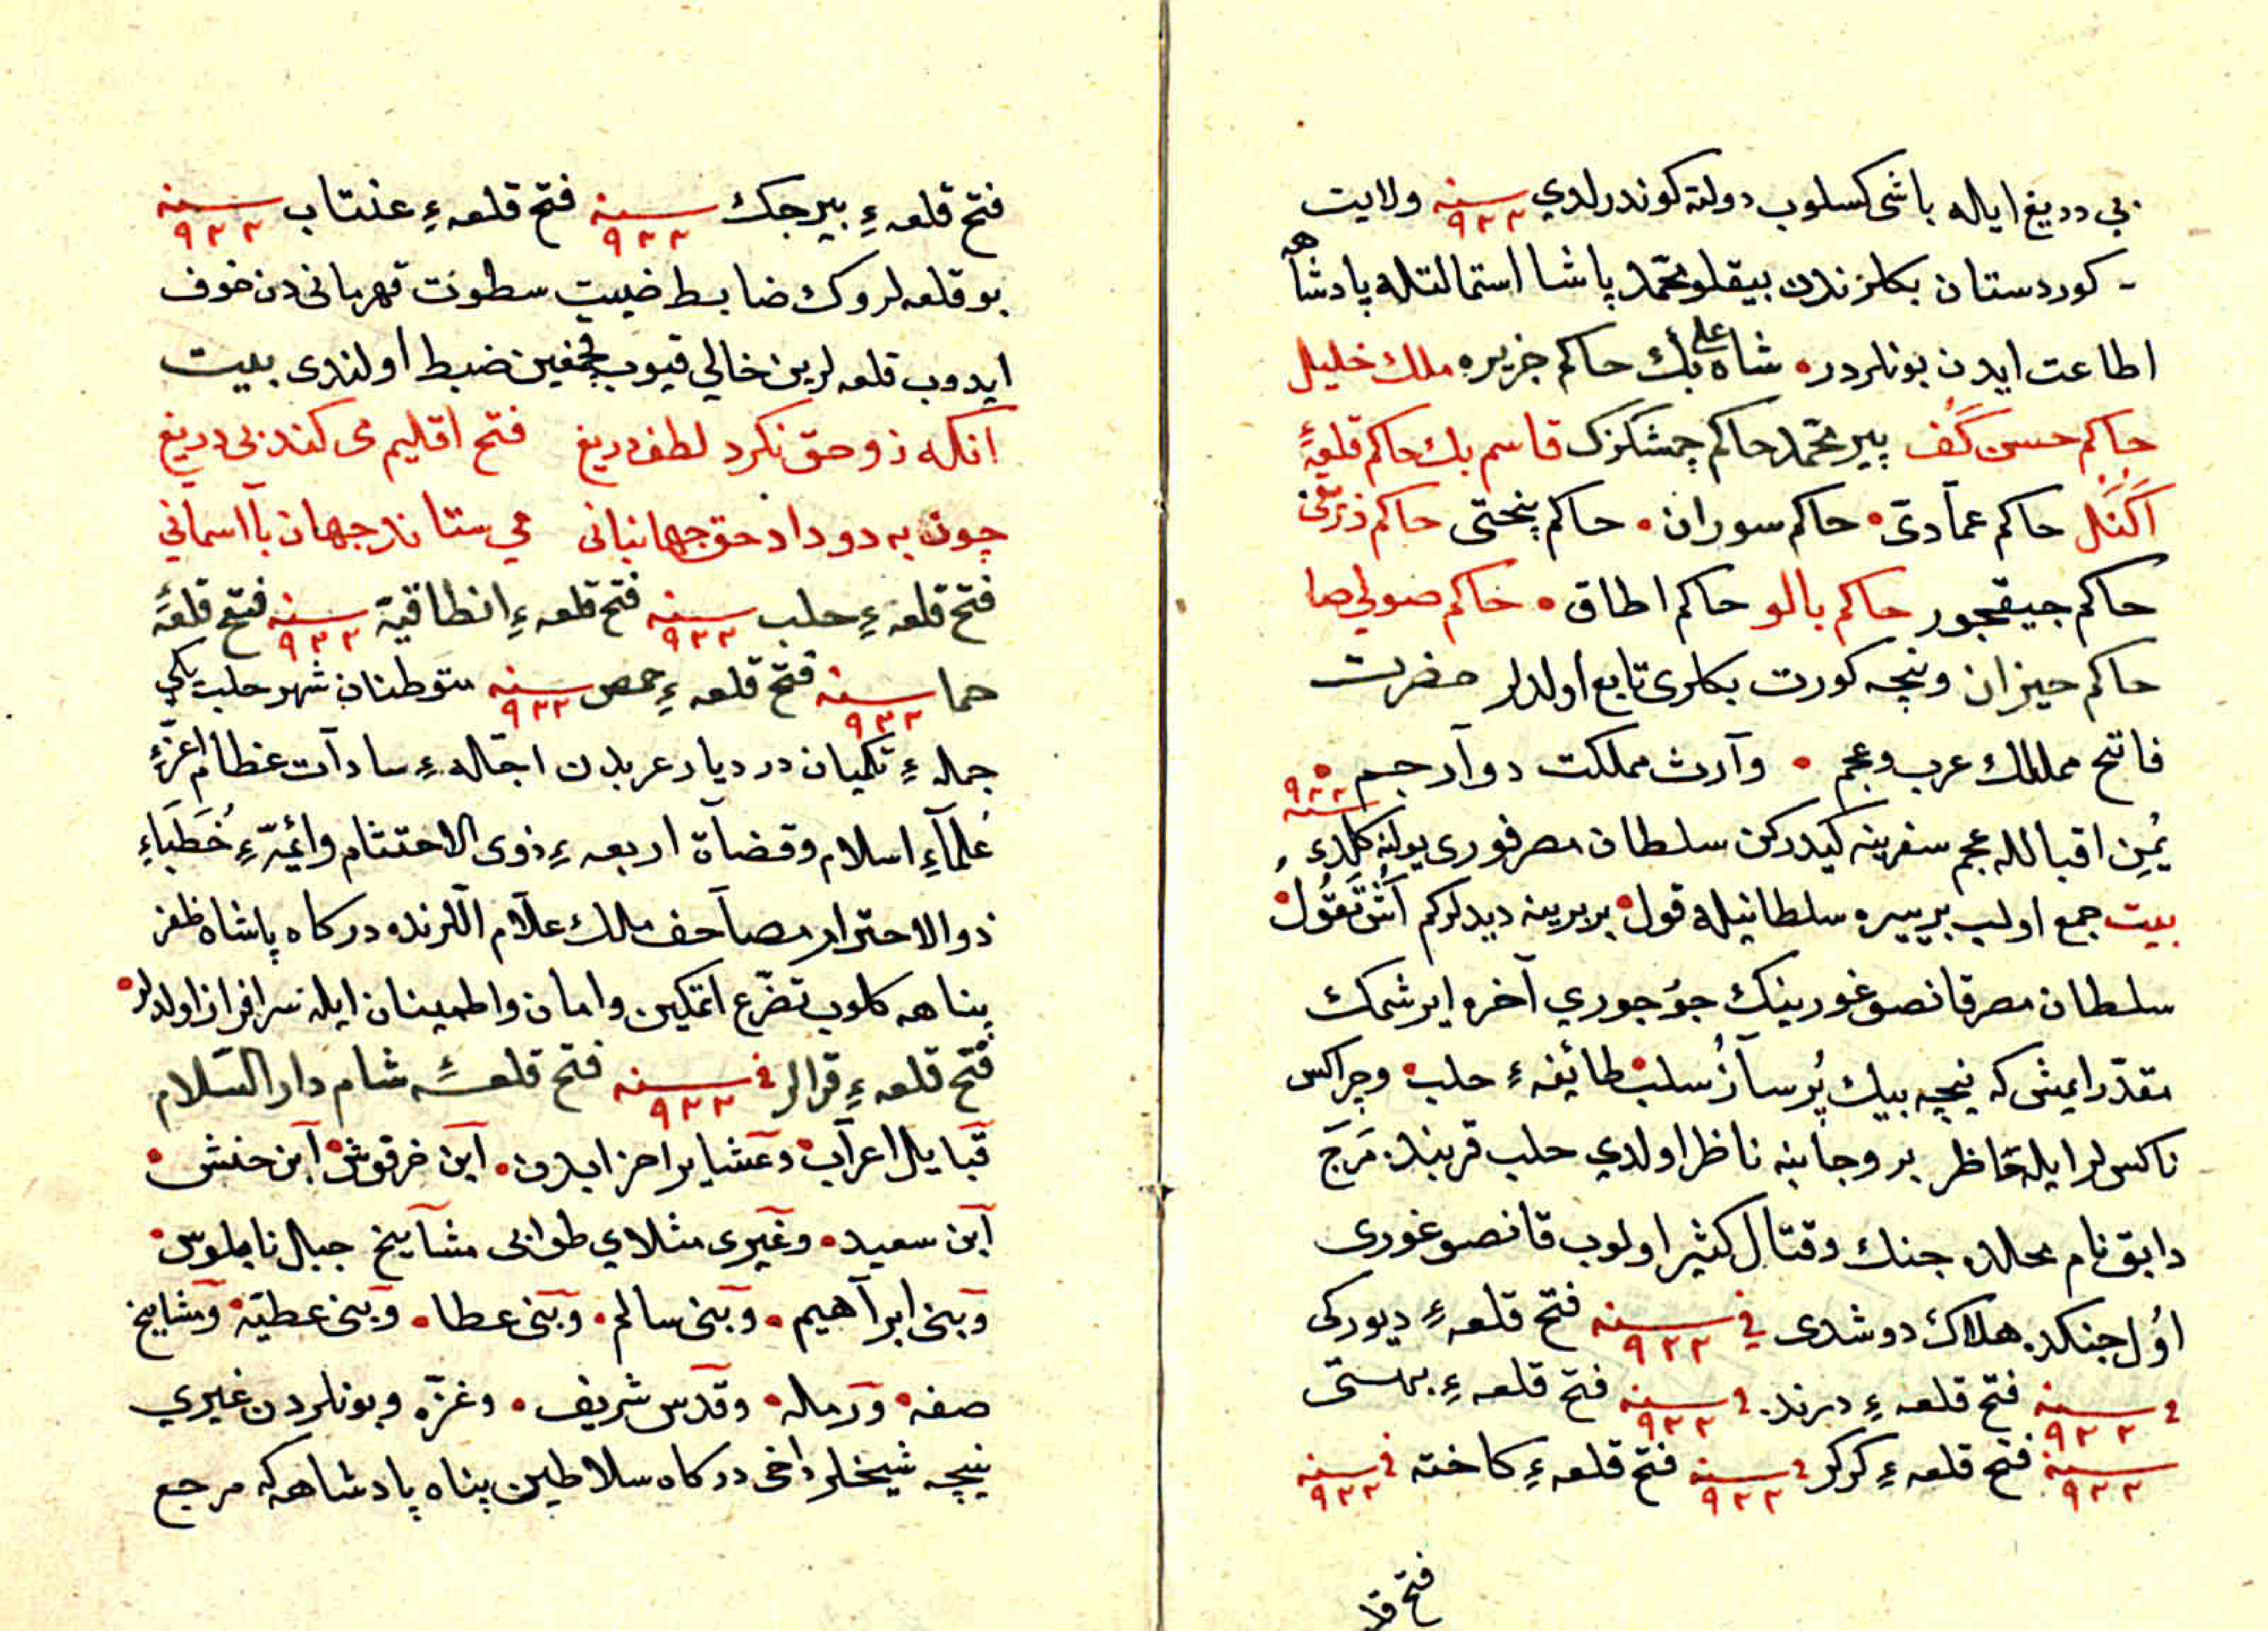 بی دریغ ایله باشی کسلوب دولته کوندرلدي سنه ٩٢٢ ولایت
کوردستان بکلرندن بیقلو محمد پاشا استمالتله پادشاهه
اطاعت ایدن بونلردر شاه علی بك حاکم جزیره ملك خلیل
حاکم حسن کَف پیر محمد حاکم چمشکزك قاسم بك حاکم قلعۀ
اَکَنَل حاکم عمآدی حاکم سوران حاکم پنحتی حاکم
حاکم جیقجور حاکم بالو حاکم اطاق حاکم صولی
حاکم حیزان ونیجه کورت بکلری تابع اولدلر حضرت
فاتح ممالك عرب وعجم وآرث مملکت دوآرجم ٩٢٢ سنه
یُمنِ اقبالله عجم سفرینه کیدرکن سلطان مصر غوری یولنه کلدی
بیت جمع اولب بریره سلطانیله قول بربرینه دیدلرکم
سلطان مصر قانصو غورینك جوُجوري آخره ایرشمك
مقدّر ایمش که نیجه بیك طائیفهٔ حلب وجراکس
ناکس لر ایله بر وجانبه ناظر اولدي حلب قربنده مَرَج
دابق نام محلده جنك وقتال کثیر اولوب قانصو غوری
اوُل جنکده هلاك دوشدی في سنه ٩٢٢ فتح قلعهٔ دیورکی
في سنه ٩٢٢ فتح قلعهٔ درنده في سنه ٩٢٢ فتح قلعهٔ بهستی
سنه ٩٢٢ فتح قلعهٔ کرکر في سنه ٩٢٢ فتح قلعهٔ کاخته في سنه ٩٢٢
فتح قلـ
فتح قلعهٔ بیرجك سنه ٩٢٢ فتح قلعهٔ عنتاب سنه ٩٢٢
بو قلعه لروك ضابط سطوت قهرمانی دن خوف
ایدوب قلعه لرین خالی قیوب ضبط اولندی بیت
آنکه زو حق نکرد لطف دریغ فتح اقلیم می کند بی دریغ
چون به دو داد حق جهانبانی می ستاند جهان بآاسانی
فتح قلعهٔ حلب سنه ٩٢٢ فتح قلعهٔ انطاقیة سنه ٩٢٢ فتح قلعهٔ
حما سنه ٩٢٢ فتح قلعهٔ حمص سنه ٩٢٢ متوطنان شهر حلب
جملهٔ در دیار عربدن اجلهٔ سادآت عظام اعزّهٔ
عُلمآءِ اسلام وقضاة اربعهٔ ذوی الاحتشام وائمّهٔ خُطَباءِ
ذو الاحترام مصآحف ملك علآم الّلرنده درکاه پاشاه ظفر
پناهه کلوب تضرّع اتمکین وامان واطمینان ایله سرافراز اولدلر
فتح قلعهٔ قرالر في سنه ٩٢٢ فتح قلعهٔ شام دار السّلام
قبایل اعرآب وعشایر احزابدن آبن خرقوش آبن حنش
آبن سعید وغیری مثلاي طرابی مشآیخ جبال نابلوس
وبنی ابرآهیم وبنی سالم وبنی عطا وبنی عطیّة ومشایخ
صفه ورمله وقدس شریف وغزّه وبونلردن غیري
نیجه شیخلر داخی درکاه سلاطین پناه پادشاهه که مرجع